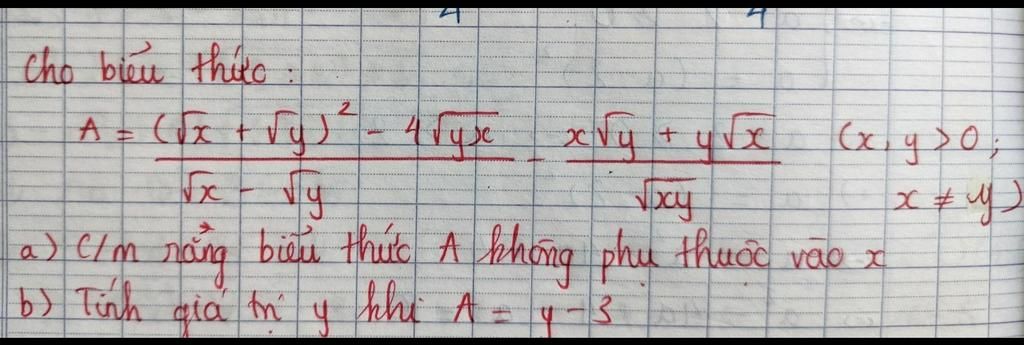 Cho biểu thức :
A = \frac{(\sqrt{x} + \sqrt{y})^2 - 4\sqrt{yx}}{\sqrt{x} - \sqrt{y}} - \frac{x\sqrt{y} + y\sqrt{x}}{\sqrt{xy}} (x, y > 0; x ≠ y)
a) C/m rằng biểu thức A không phụ thuộc vào x
b) Tính giá trị y khi A = y - 3